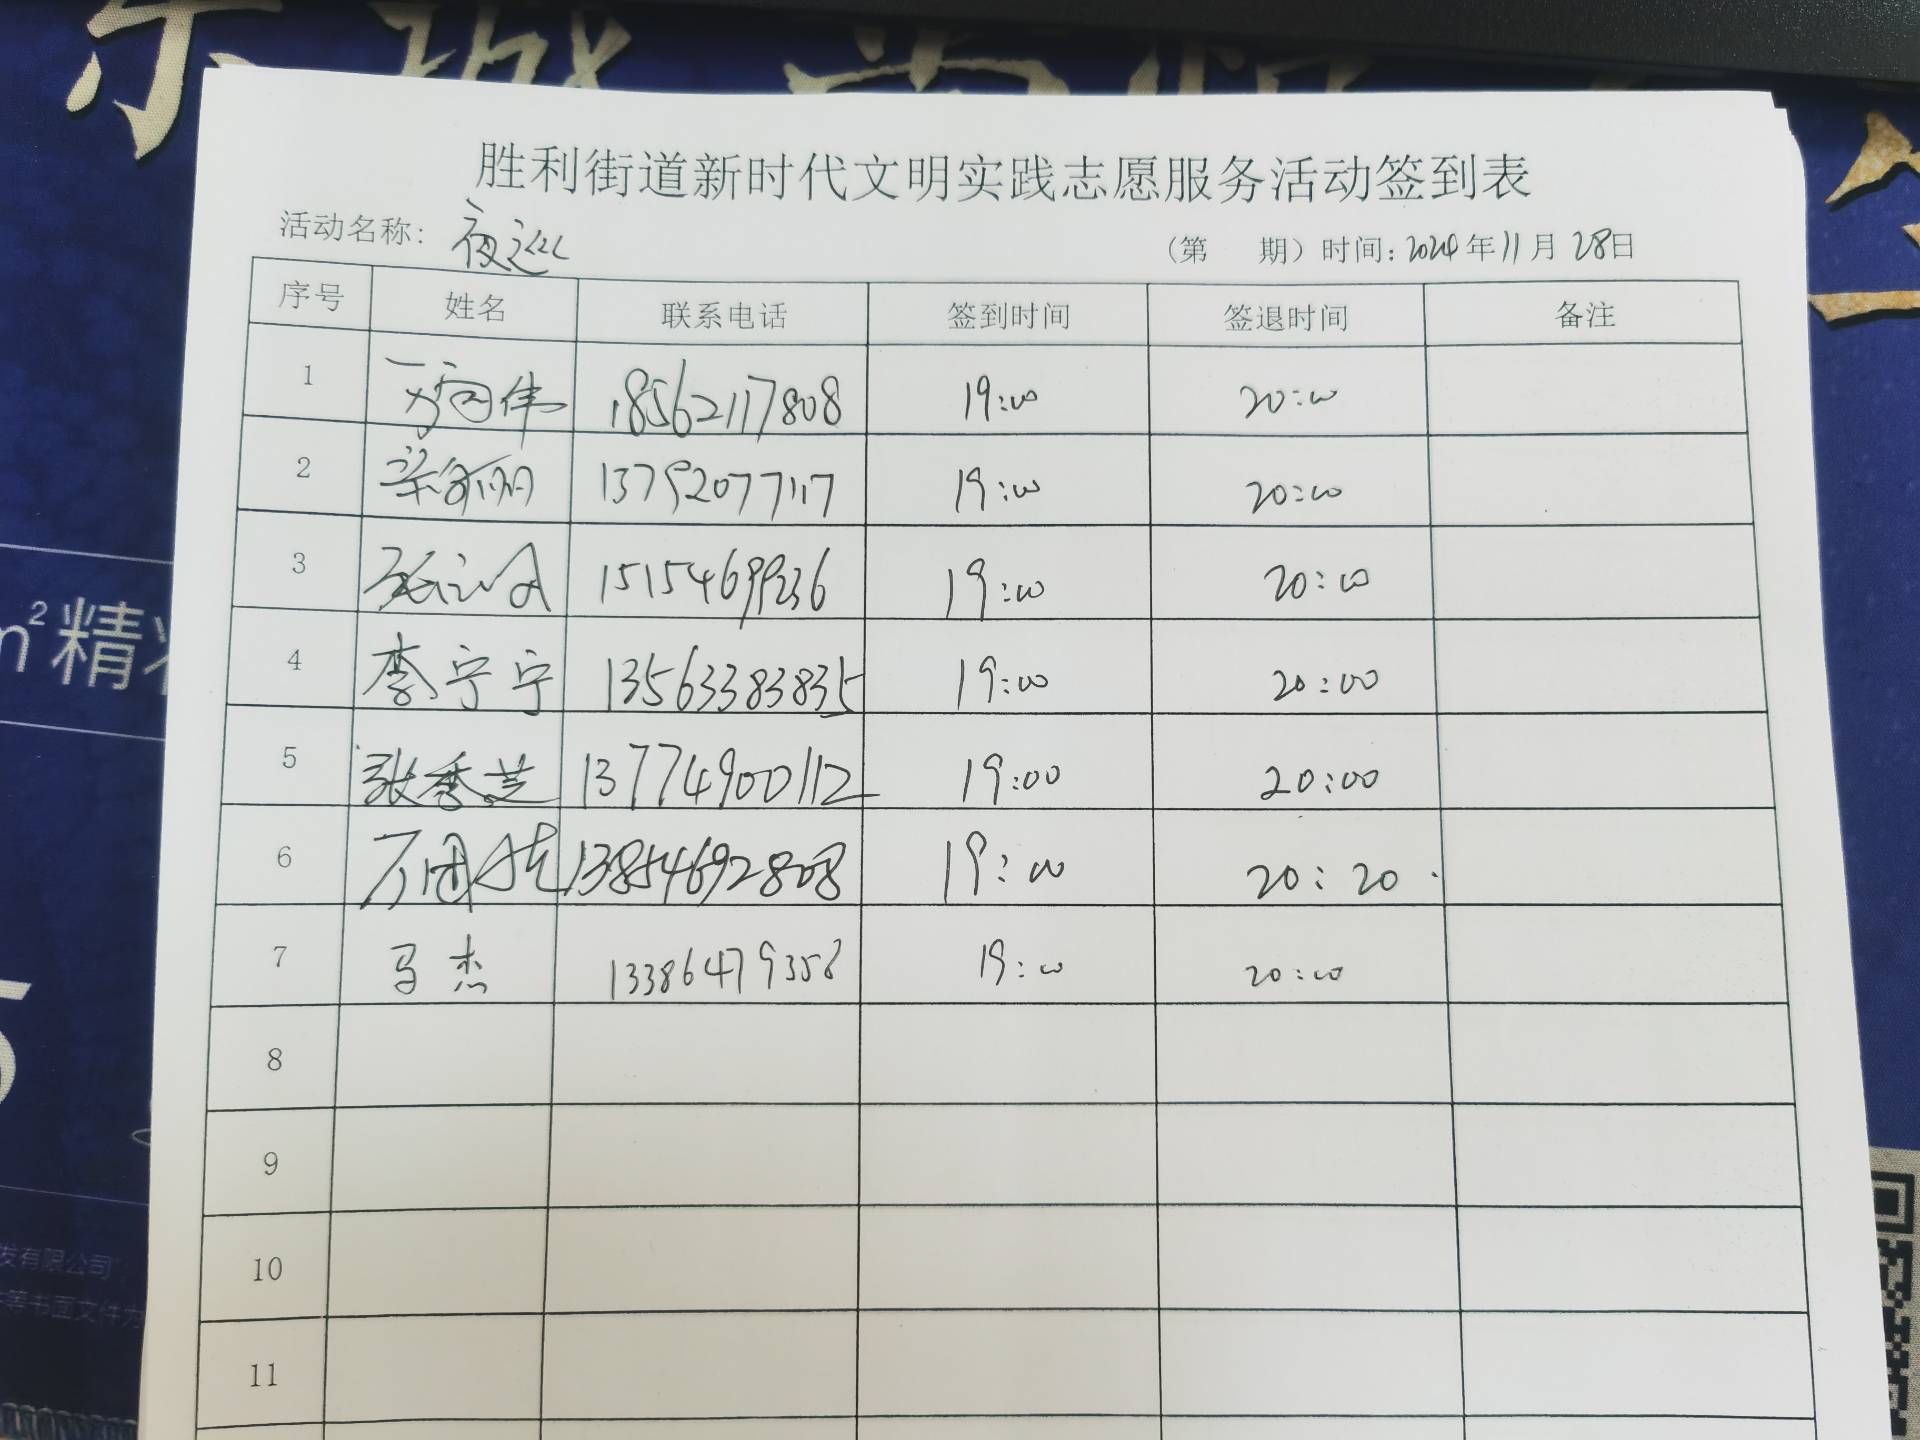 胜利街道新时代文明实践志愿服务活动签到表
活动名称：夜巡
（第 期）时间：2024年11月28日
序号 姓名 联系电话 签到时间 签退时间 备注
1 18562117808 19:00 20:00
2 13792077117 19:00 20:00
3 15154699236 19:00 20:00
4 李宁宁 13563383835 19:00 20:00
5 张秀芝 13774900112 19:00 20:00
6 13854692808 19:00 20:20
7 马杰 13386479358 19:00 20:00
8
9
10
11
m²精
5
发有限公司
等书面文件为